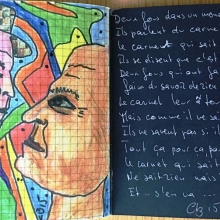 Deux fous dans un mon
Ils parlent du carne
le carnet qui sait
Ils se disent que c'est
Deux fous qui ont f
J'ai du savoir de rien
le carnet leur a to
Mais comme il ne sa
Ils ne savent pas si
Tout ça pour ça pa
le carnet qui sait
Ne sait rien mais
Et s'en va ...